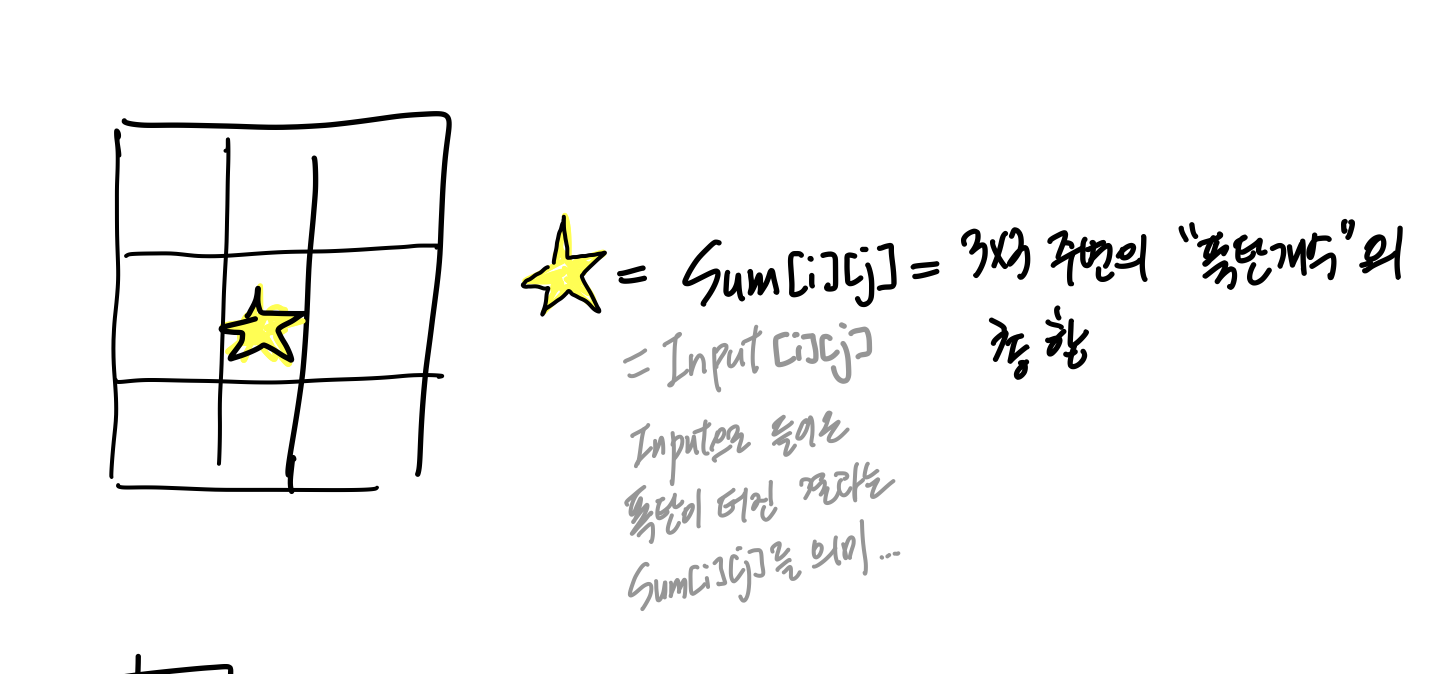 = Sum[i][j] = 3x3 주변의 "폭탄개수"의
총 합
= Input[i][j]
Input으로 들어온
폭탄이 터진 결과는
Sum[i][j]를 의미...